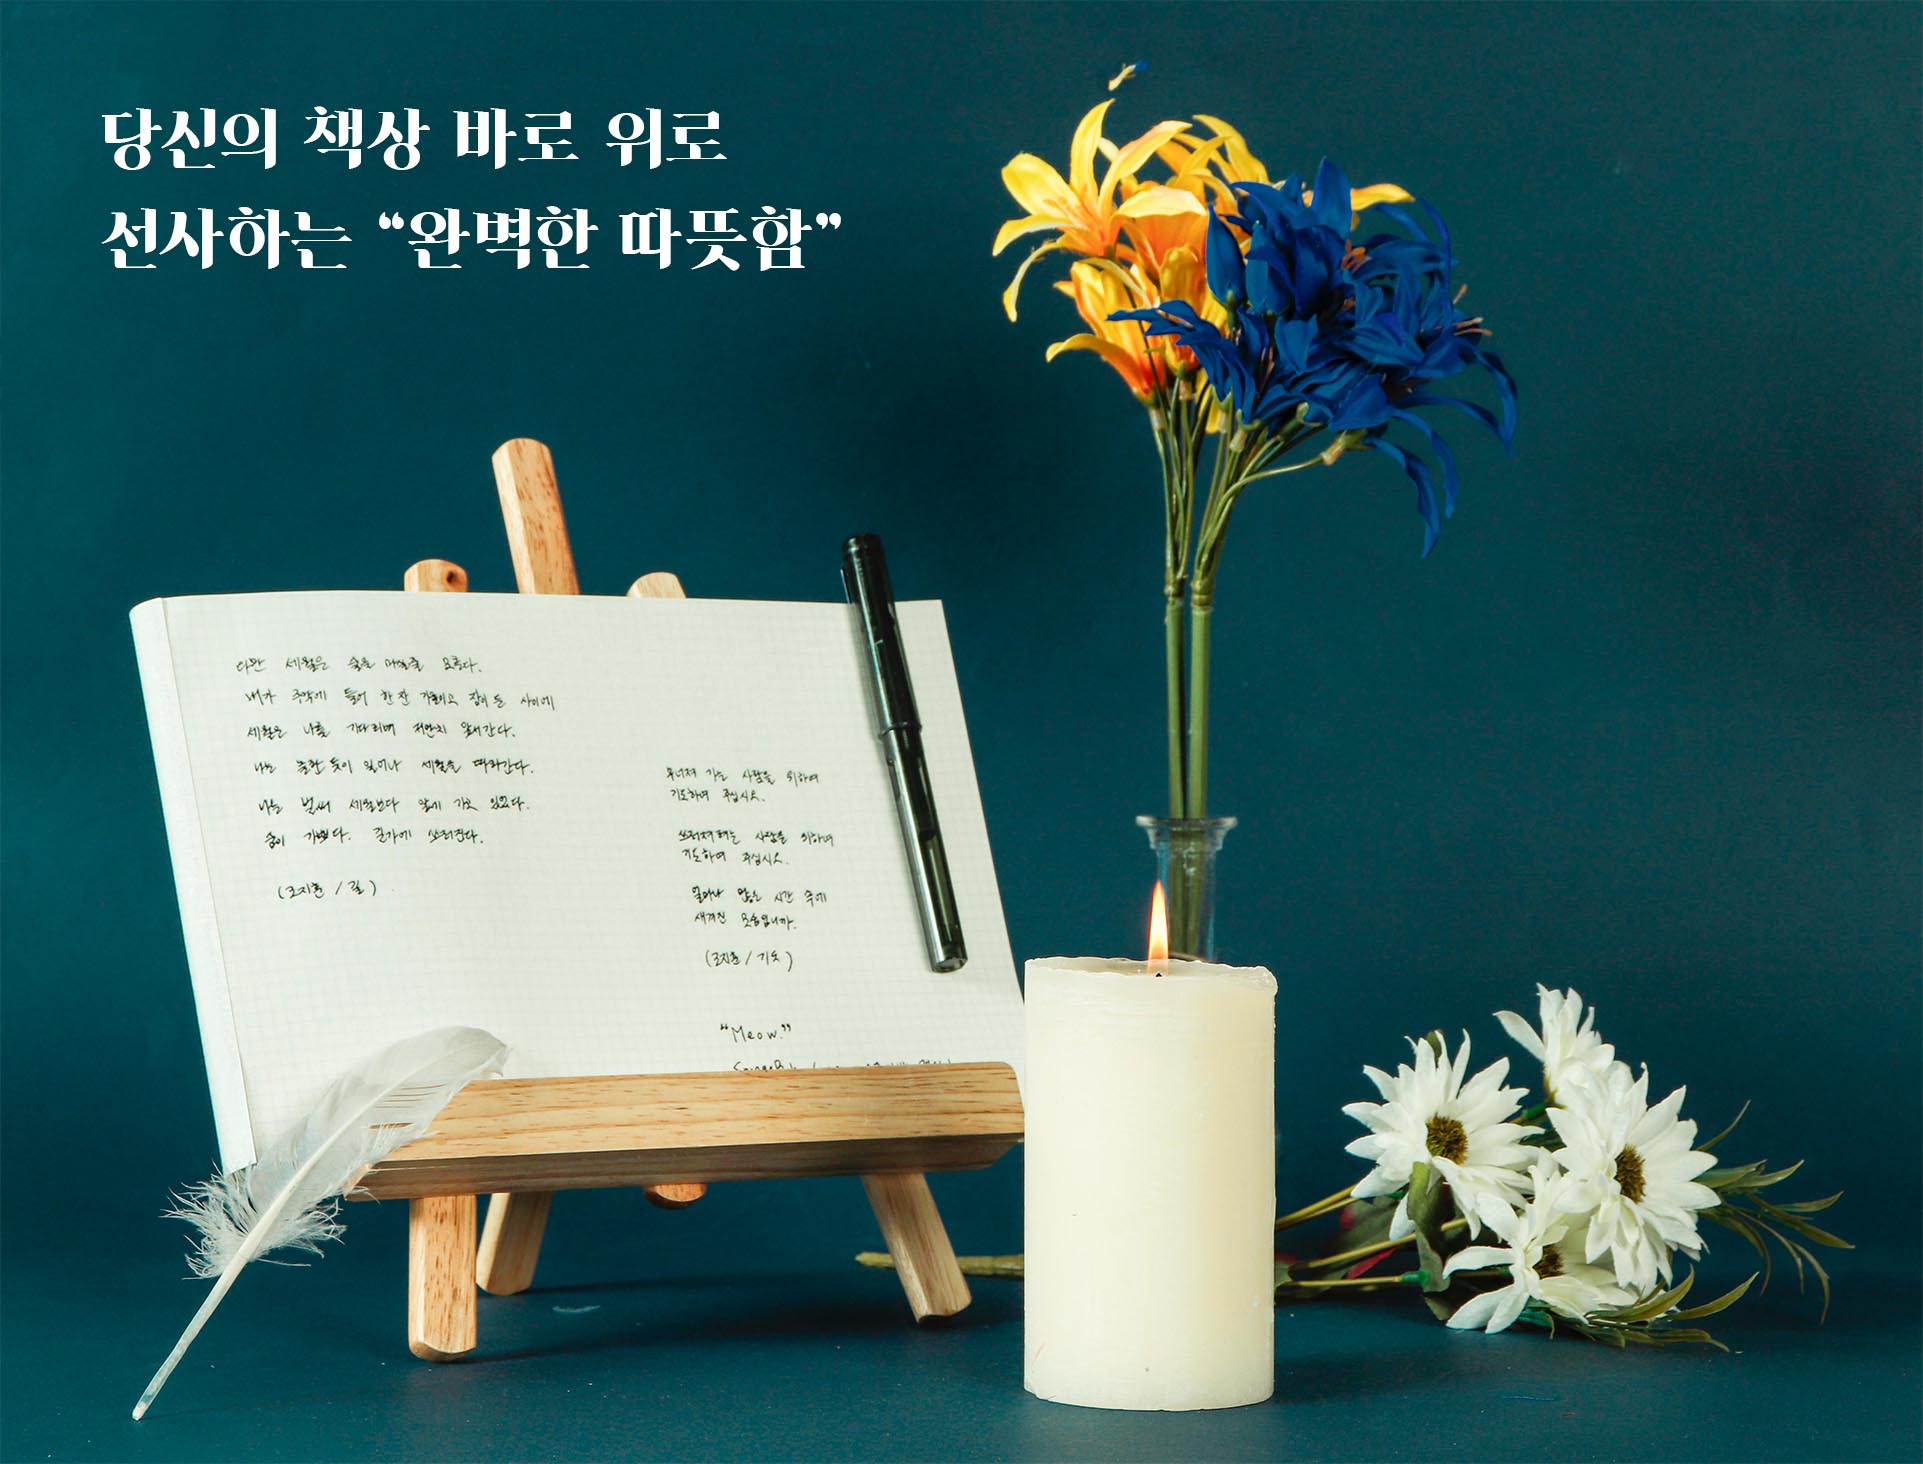 당신의 책상 바로 위로
선사하는 “완벽한 따뜻함”
다만 세월은 술을 마실줄 모른다.
내가 주막에 들어 한 잔 기울이고 잠이 든 사이에
세월은 나를 기다리며 저만치 앞서간다.
나는 놀란 듯이 일어나 세월을 따라간다.
나는 벌써 세월보다 앞에 가고 있었다.
숨이 가쁘다. 길가에 쓰러진다.
(조지훈 / 길)
무너져 가는 사람을 위하여
기도하여 주십시오.
쓰러져 가는 사람을 위하여
기도하여 주십시오.
얼마나 많은 시간 속에
새겨진 모습입니까.
(조지훈 / 기도)
“Meow.”